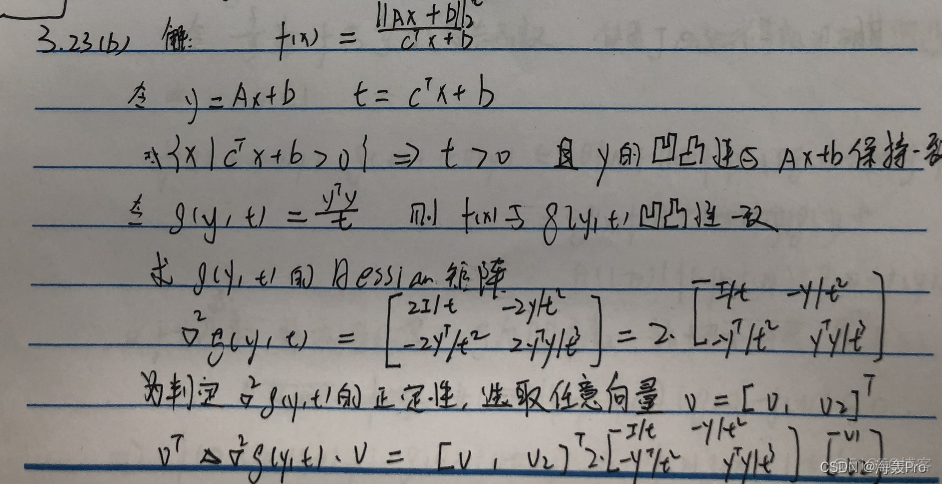 3.23(b) 解: f(x) = ||Ax + b||₂² / cᵀx + b
令 y = Ax + b t = cᵀx + b
对 {x | cᵀx + b > 0} ⇒ t > 0 且 y 的凹凸性与 Ax+b 保持一致
令 g(y, t) = yᵀy / t 则 f(x) 与 g(y, t) 凹凸性一致
求 g(y, t) 的 Hessian 矩阵
∇²g(y, t) = [2I/t -2y/t² ; -2yᵀ/t² 2·yᵀy/t³] = 2· [I/t -y/t² ; -yᵀ/t² yᵀy/t³]
为判定 ∇²g(y, t) 的正定性, 选取任意向量 v = [v, v2]ᵀ
vᵀ ∇²g(y, t) · v = [v, v2]ᵀ 2· [I/t -y/t² ; -yᵀ/t² yᵀy/t³] [v1
CSDN @海轰Pro